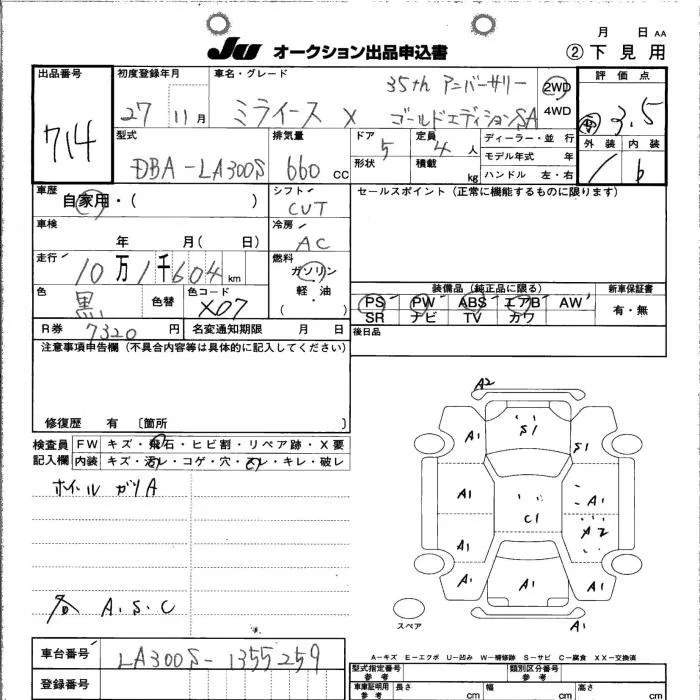 月 日 AA
JU オークション出品申込書
② 下見用
出品番号
714
初度登録年月
27 11 月
車名・グレード
35th アニバーサリー
ミライース X ゴールドエディションSA
2WD
4WD
評価点
3.5
外装 内装
型式
DBA-LA300S
排気量
660 CC
ドア
5
形状
定員
4 人
積載
kg
ディーラー・並行
モデル年式 年
ハンドル 左・右
b
車歴
自家用・( )
シフト
CVT
セールスポイント(正常に機能するものに限ります)
車検
年 月( 日)
冷房
AC
走行
10万1千604 km
燃料
ガソリン
軽・油
( ・ )
色
黒
色替
色コード
X07
装備品(純正品に限る)
新車保証書
PS PW ABS エアB AW
SR ナビ TV カワ
有・無
R券 7320 円
名変通知期限 月 日
後日品
注意事項申告欄(不具合内容等は具体的に記入してください)
修復歴 有 〔箇所 〕
検査員
記入欄
FW キズ・飛石・ヒビ割・リペア跡・X要
内装 キズ・汚レ・コゲ・穴・スレ・キレ・破レ
ホイール ガリA
A.S.C
A2
A1
S1
S1
A1
A1
C1
A2
A1
A1
A1
A1
A1
スペア
A-キズ E-エクボ U-凹み W-補修跡 S-サビ C-腐食 XX-交換済
車台番号
LA300S-1355259
登録番号
型式指定番号
参考
類別区分番号
参考
車庫証明用
参考
長さ cm
幅 cm
高さ cm